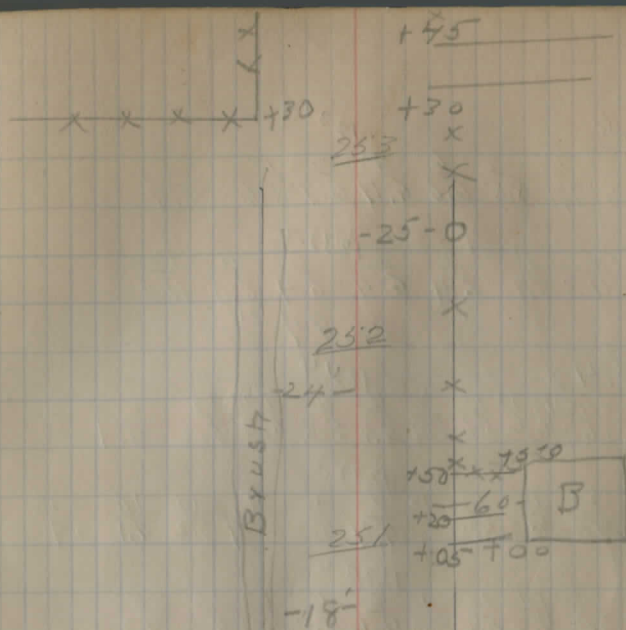 +45
+30 +30
253
-25-0
252
-24'-
Brush
+50
-60-
B
+20
251
+05 +00
-18'-